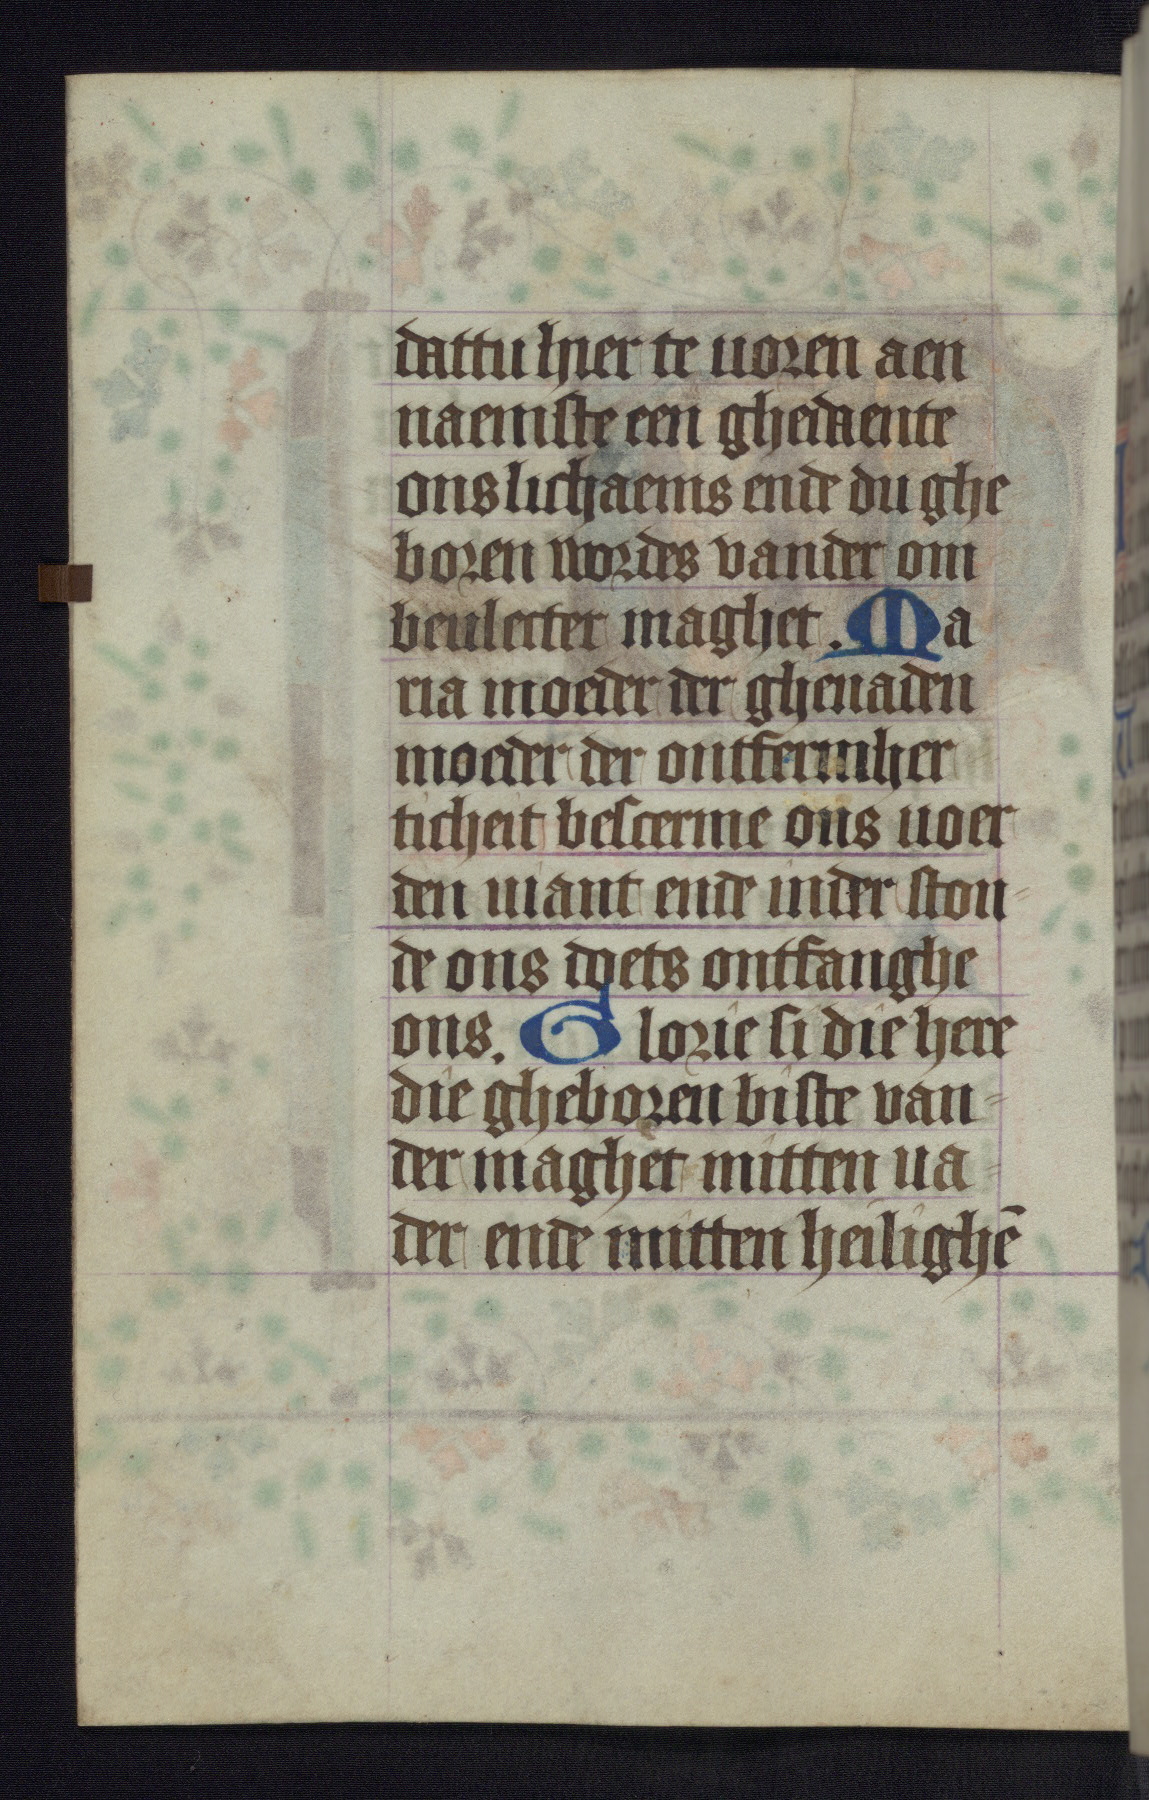 dattu hier te uoren aen
naemste een ghedaente
ons lichaems ende du ghe
boren wordes vander om
beuleeter maghet. Ma
ria moeder der ghenaden
moeder der ontfermher
ticheit bescerme ons uoer
den uiant ende inder ston-
de ons doets ontfanghe
ons. Glorie si die here
die gheboren biste van-
der maghet mitten ua-
der ende mitten heilighē